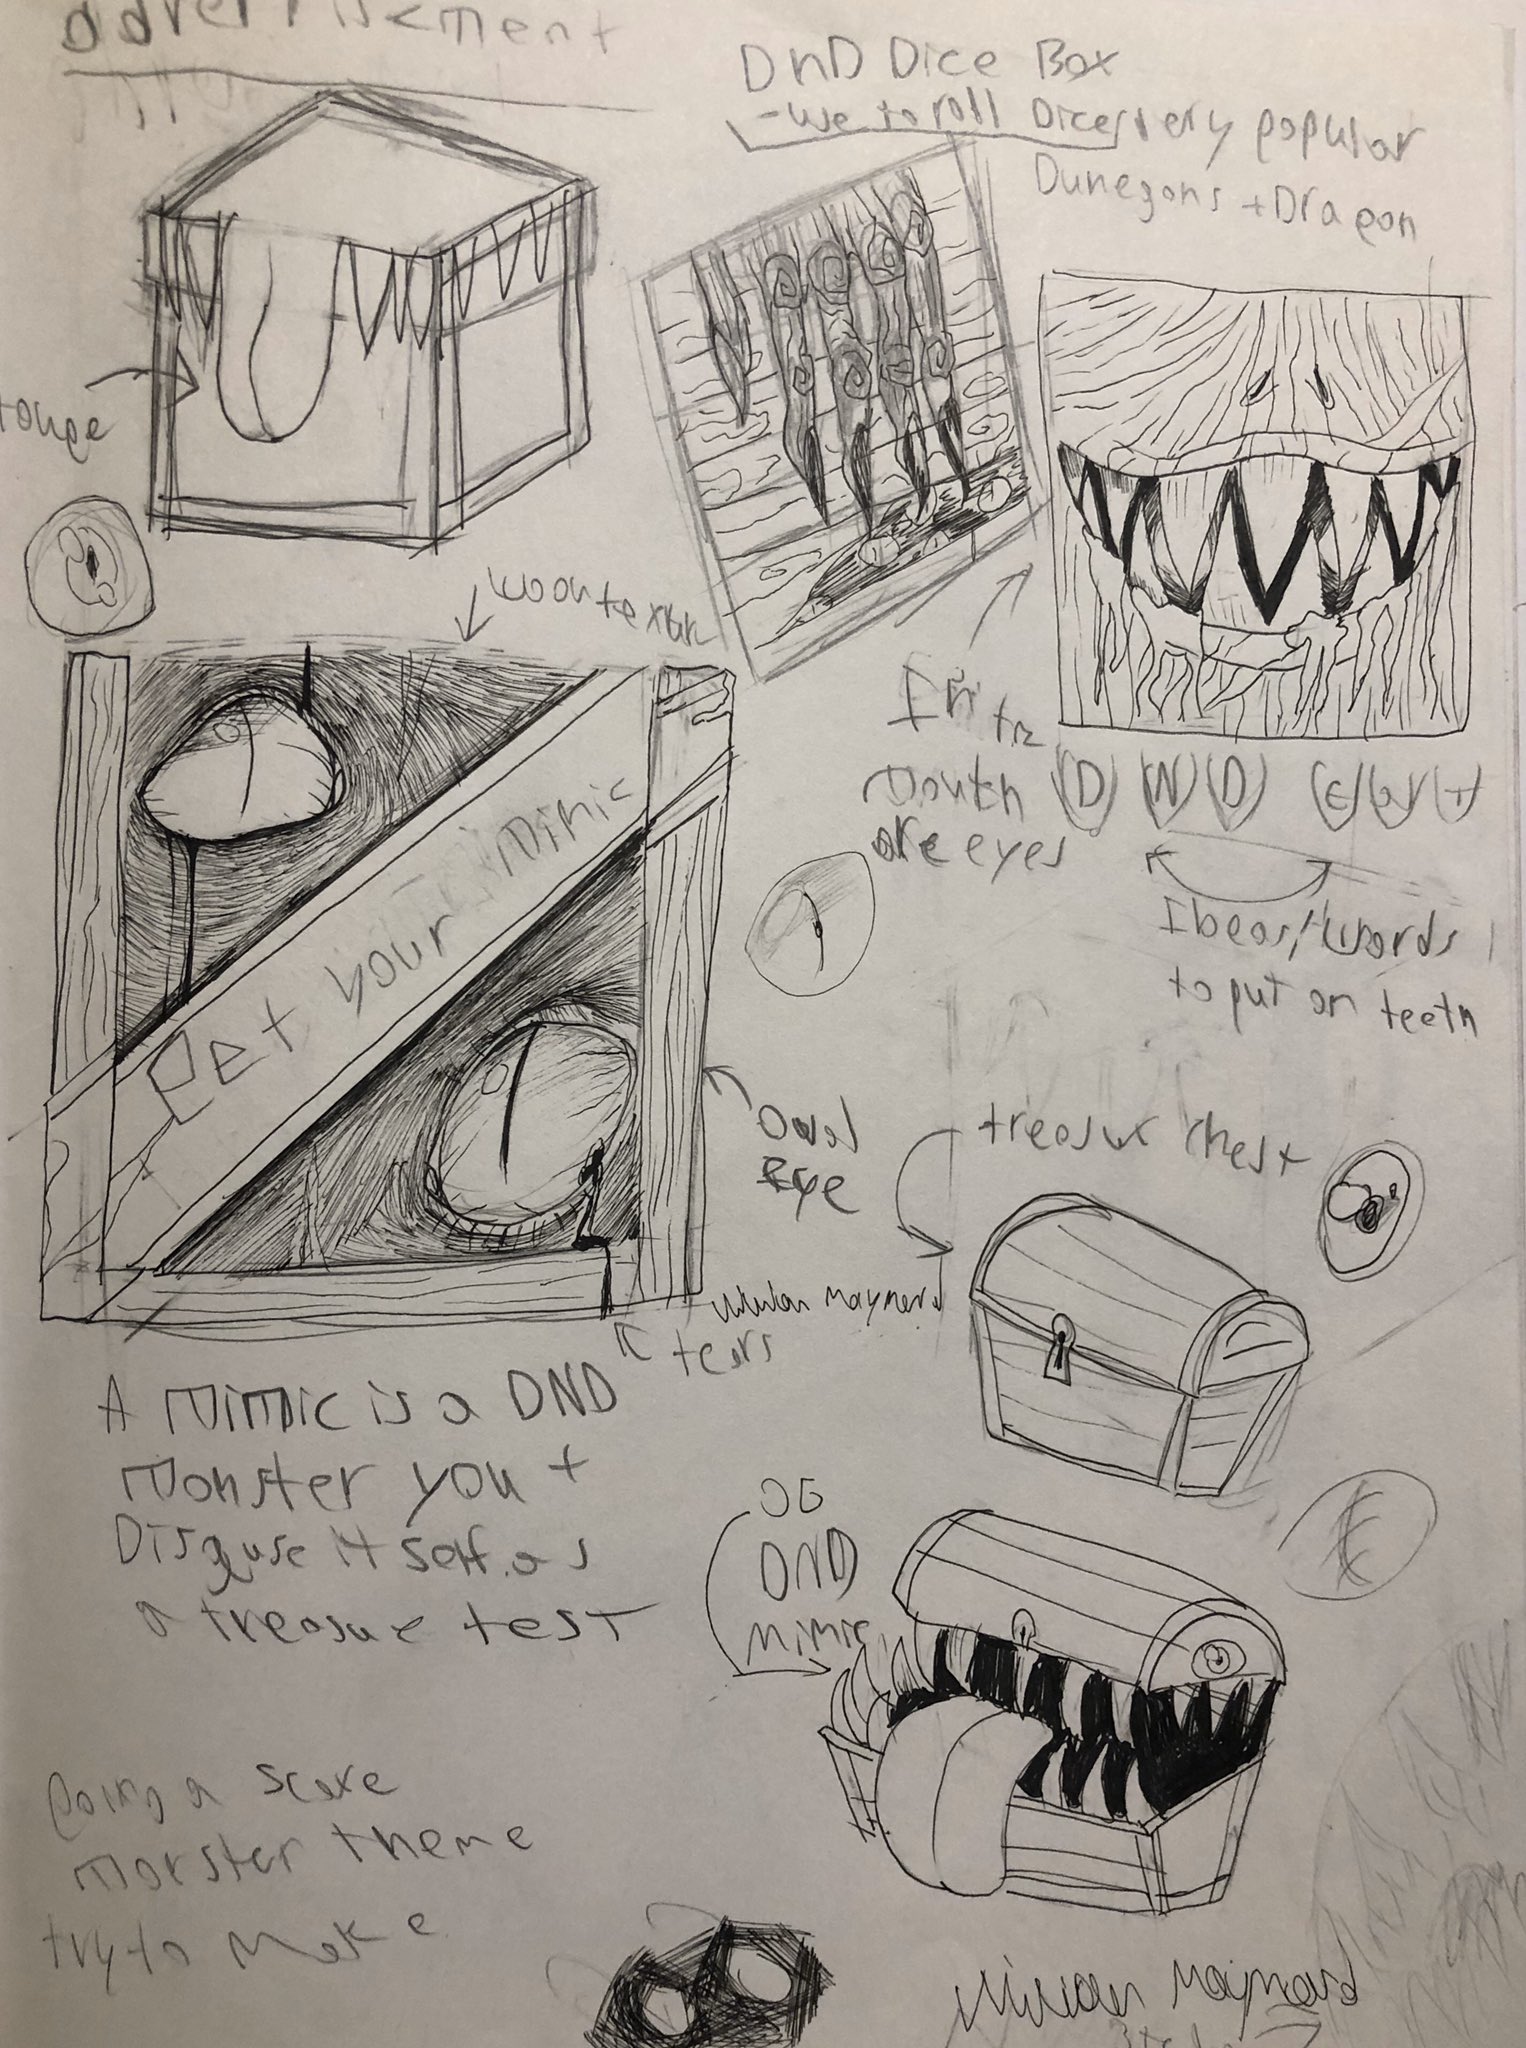 advertisement
DnD Dice Box
- we to roll Dices very popular
Dunegons + Dragon
tounge
woontextur
In the
Mouth
are eyes
D N D
Ibeas/words
to put on teeth
Pet your Mimic
Oval
Eye
treasur chest
Vivian Maynard
tears
A Mimic is a DND
Monster you t
Disguse it self as
a treasure test
OG
DND
Mimic
going a scare
monster theme
try to make
Vivian Maynard